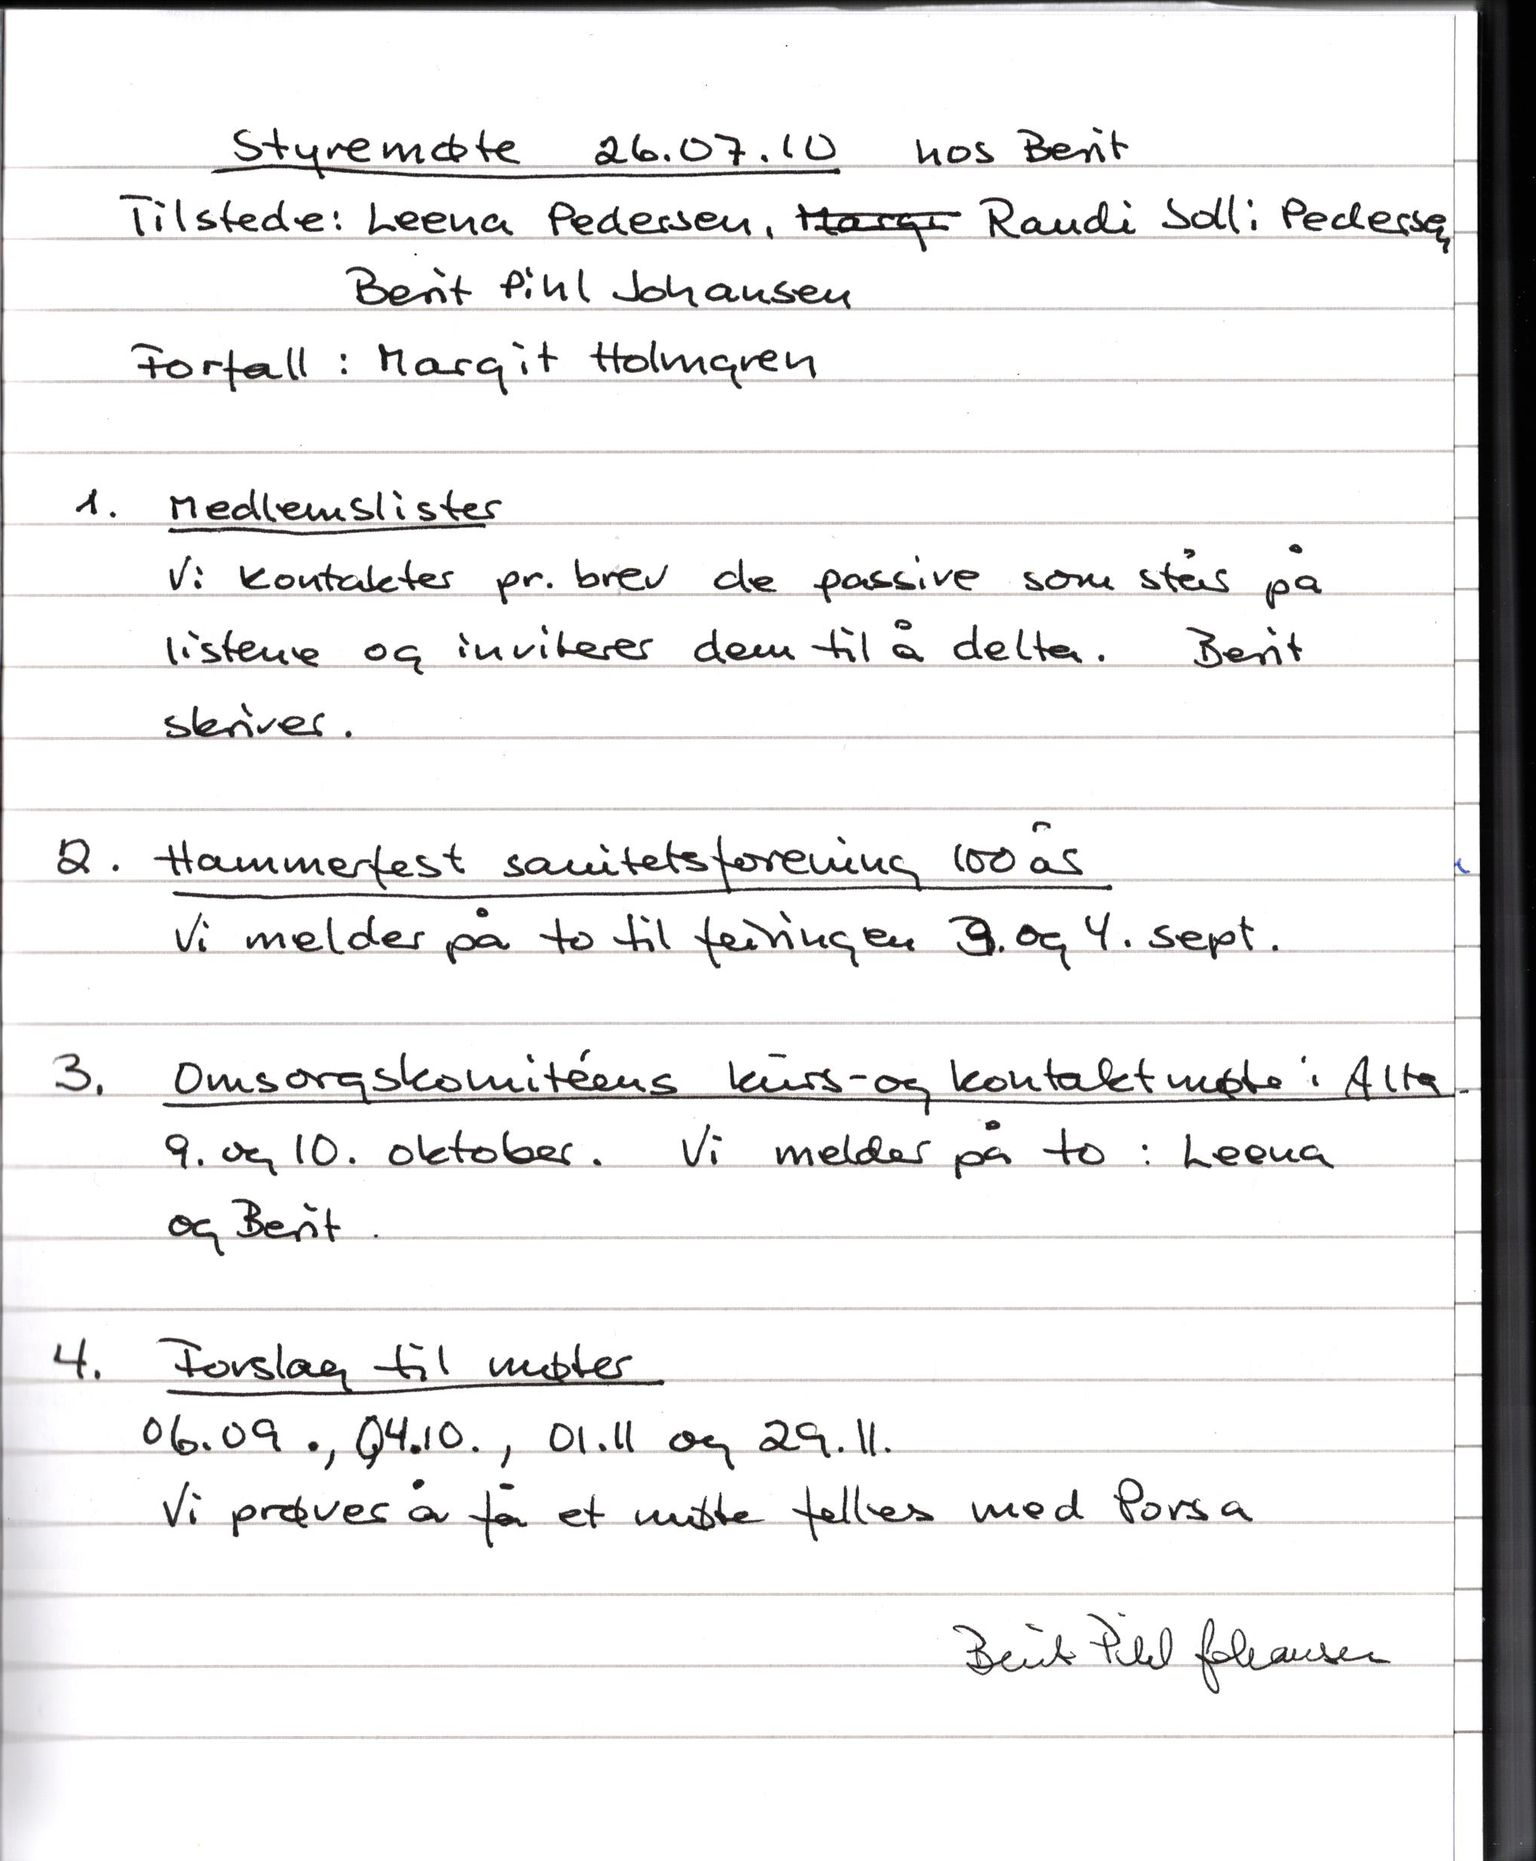 Styremøte 26.07.10 hos Berit
Tilstede: Leena Pedersen, Margi Randi Solli Pedersen,
Berit Pihl Johansen
Forfall : Margit Holmgren
1. Medlemslister
Vi kontakter pr. brev de passive som står på
listene og inviterer dem til å delta. Berit
skriver.
2. Hammerfest sanitetsforening 100 år
Vi melder på to til feiringen 3. og 4. sept.
3. Omsorgskomitéens kurs- og kontaktmøte i Alta
9. og 10. oktober. Vi melder på to : Leena
og Berit.
4. Forslag til møter
06.09., 04.10., 01.11 og 29.11.
Vi prøver å få et møte felles med Porsa
Berit Pihl Johansen